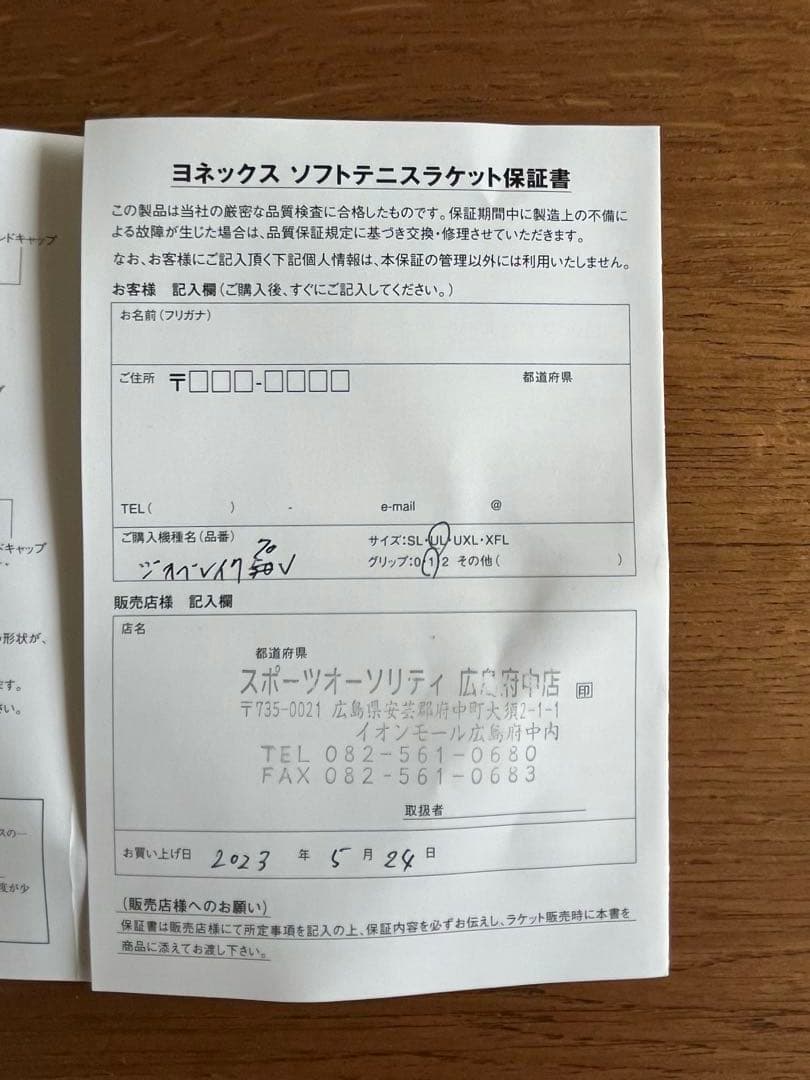 ヨネックス ソフトテニスラケット保証書
この製品は当社の厳密な品質検査に合格したものです。保証期間中に製造上の不備に
よる故障が生じた場合は、品質保証規定に基づき交換・修理させていただきます。
なお、お客様にご記入頂く下記個人情報は、本保証の管理以外には利用いたしません。
お客様 記入欄(ご購入後、すぐにご記入してください。)
お名前(フリガナ)
ご住所 〒□□□-□□□□ 都道府県
TEL( ) - e-mail @
ご購入機種名(品番) サイズ:SL・UL・UXL・XFL
ジオブレイク V グリップ:0・1・2 その他( )
販売店様 記入欄
店名
都道府県
スポーツオーソリティ 広島府中店 印
〒735-0021 広島県安芸郡府中町大須2-1-1
イオンモール広島府中内
TEL 082-561-0680
FAX 082-561-0683
取扱者
お買い上げ日 2023 年 5 月 24 日
(販売店様へのお願い)
保証書は販売店様にて所定事項を記入の上、保証内容を必ずお伝えし、ラケット販売時に本書を
商品に添えてお渡し下さい。
ンドキャップ
ドキャップ
形状が、
ます。
さい。
スの一
度が少